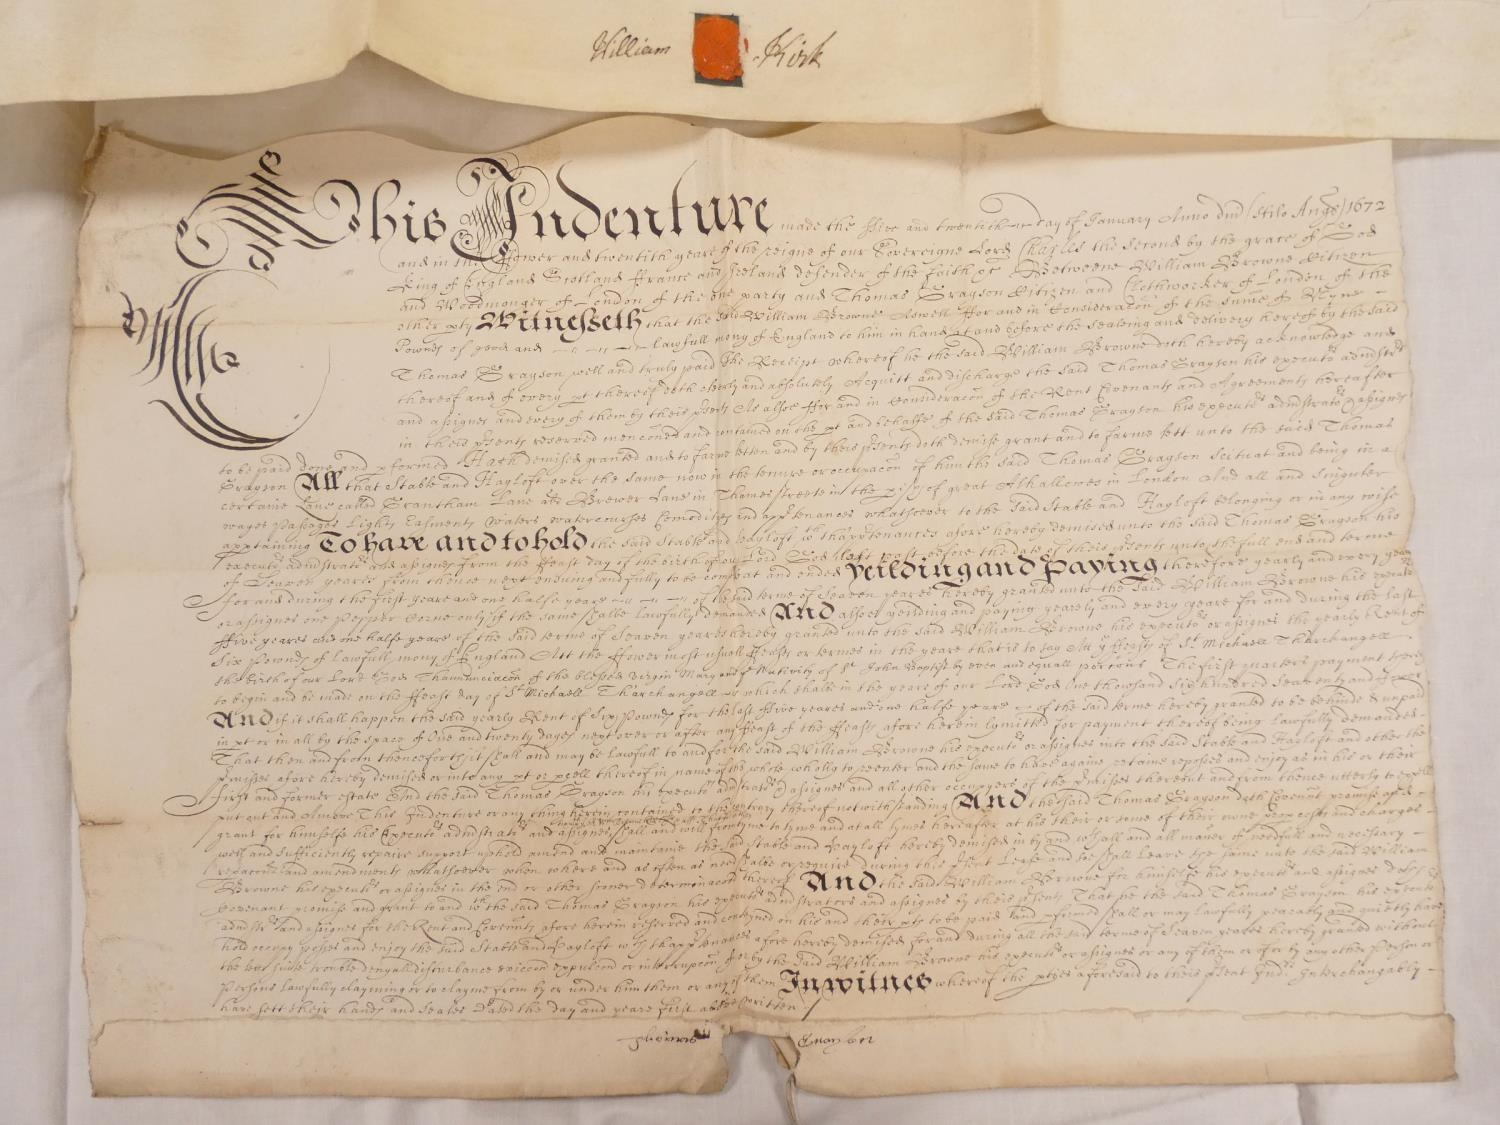 William Kirk
This Indenture made the ffive and twentieth day of January Anno dni (stilo Angł) 1672
and in the ffower and twentith yeare of the reigne of our Sovereigne Lord Charles the Second by the grace of God
King of England Scotland ffrance and Ireland defender of the faith &c Betweene William Browne Citizen
and Woodmonger of London of the one party and Thomas Grayson Citizen and Clothworker of London of the
other pty Witnesseth that the said William Browne Aswell ffor and in Consideracon of the summe of Nyne
Pownds of good and lawfull mony of England to him in hand att and before the sealing and delivery hereof by the said
Thomas Grayson well and truly paid The Receipt whereof he the said William Browne doth hereby acknowledge and
thereof and of every pt thereof doth cleerly and absolutely Acquitt and discharge the said Thomas Grayson his executrs adminstrs
and assignes and every of them by theis psents As alsoe ffor and in Consideracon of the Rent Covenants and Agreements hereafter
in theis psents reserved menconed and contained on the pt and behalfe of the said Thomas Grayson his executrs adminstrators & assignes
to be paid done and pformed Hath demised granted and to farme letten and by theis psents doth demise grant and to farme lett unto the said Thomas
Grayson All that Stable and Hayloft over the same now in the tenure or occupacon of him the said Thomas Grayson Scituat and being in a
certaine Lane called Grantham Lane als Brewer Lane in Thames streete in the pish of great Alhallowes in London And all and singuler
wayes passages lights easments waters watercourses comodities and apprtenances whatsoever to the said Stable and Hayloft belonging or in any wise
apptaining To have and to hold the said Stable and Hayloft wth thapprtenances afore hereby demised unto the said Thomas Grayson his
executrs administratrs and assignes from the ffeast day of the birth of our Lord God last past before the date of theis psents unto the full end and terme
of Seaven yeares from thence next ensuing and fully to be compleat and ended Yeilding and Paying therefore yearly and every yeare
for and during the first yeare and one halfe yeare of the said terme of Seaven yeares hereby granted unto the said William Browne his executrs
or assignes one Pepper Corne only if the same shalbe lawfully demanded And alsoe yeilding and paying yearely and every yeare for and during the last
ffive yeares and one halfe yeare of the said terme of Seaven yeares hereby granted unto the said William Browne his executrs or assignes the yearly Rent of
Six Pownds of lawfull mony of England Att the ffower most usuall ffeasts or termes in the yeare that is to say Att ye ffeasts of St Michaell Tharchangell
the birth of our Lord God Thannunciacon of the blessed virgin Mary and ye Nativity of St John Baptist by even and equall portions The first quarters payment
to begin and be made on the ffeast day of St Michaell Tharchangell which shalbe in the yeare of our Lord God One thousand Six hundred Seaventy and
And if it shall happen the said yearly Rent of Six Pownds for the last ffive yeares and one halfe yeare of the said terme hereby granted to be behinde & unpaid
in pt or in all by the space of One and twenty dayes next over or after any ffeast of the ffeasts afore herein lymitted for payment thereof being lawfully demanded
That then and from thenceforth it shall and may be lawfull to and for the said William Browne his executrs or assignes into the said Stable and Hayloft and other the
pmises afore hereby demised or into any pt or pcell thereof in name of the whole wholly to reenter and the same to have againe retaine reposses and enjoy as in his or their
first and former estate And the said Thomas Grayson his executrs adminstratrs & assignes and all other occupyers of the pmises thereout and from thence utterly to expell
put out and Amove This Indenture or any thing herein contained to the contrary thereof notwithstanding And the said Thomas Grayson doth Covenant promise and
grant for himselfe his Executrs administratrs and assignes shall and will from tyme to tyme and at all tymes hereafter at his their or some of their owne proper costs and charges
well and sufficiently repaire support uphold amend and maintaine the said Stable and Hayloft hereby demised in by and with all and all maner of needfull and necessary
reparacons and amendments whatsoever when where and as often as need shalbe or require during this psent Lease and so shall leave the same unto the said William
Browne his executrs or assignes in the end or other sooner determinacon thereof And the said William Browne for himselfe his executrs and assignes doth
Covenant promise and grant to and wth the said Thomas Grayson his executrs administrators and assignes by theis psents That he the said Thomas Grayson his executrs
adminstrs and assignes for the Rent and Covenants afore herein reserved and contained on his and their pts to be paid and pformed shall or may lawfully peaceably and quietly have
hold occupy posses and enjoy the said Stable and Hayloft wth thapprtenances afore hereby demised for and during all the said terme of Seaven yeares hereby granted without
the lett suite trouble denyall disturbance eviccon expulcon or interrupcon of or by the said William Browne his executrs or assignes or any of them or of or by any other Person or
Persons lawfully clayming or to clayme from by or under him them or any of them In witnes whereof the ptyes aforesaid to theis psent Indres Interchangably
have sett their hands and seales Dated the day and yeare first above written